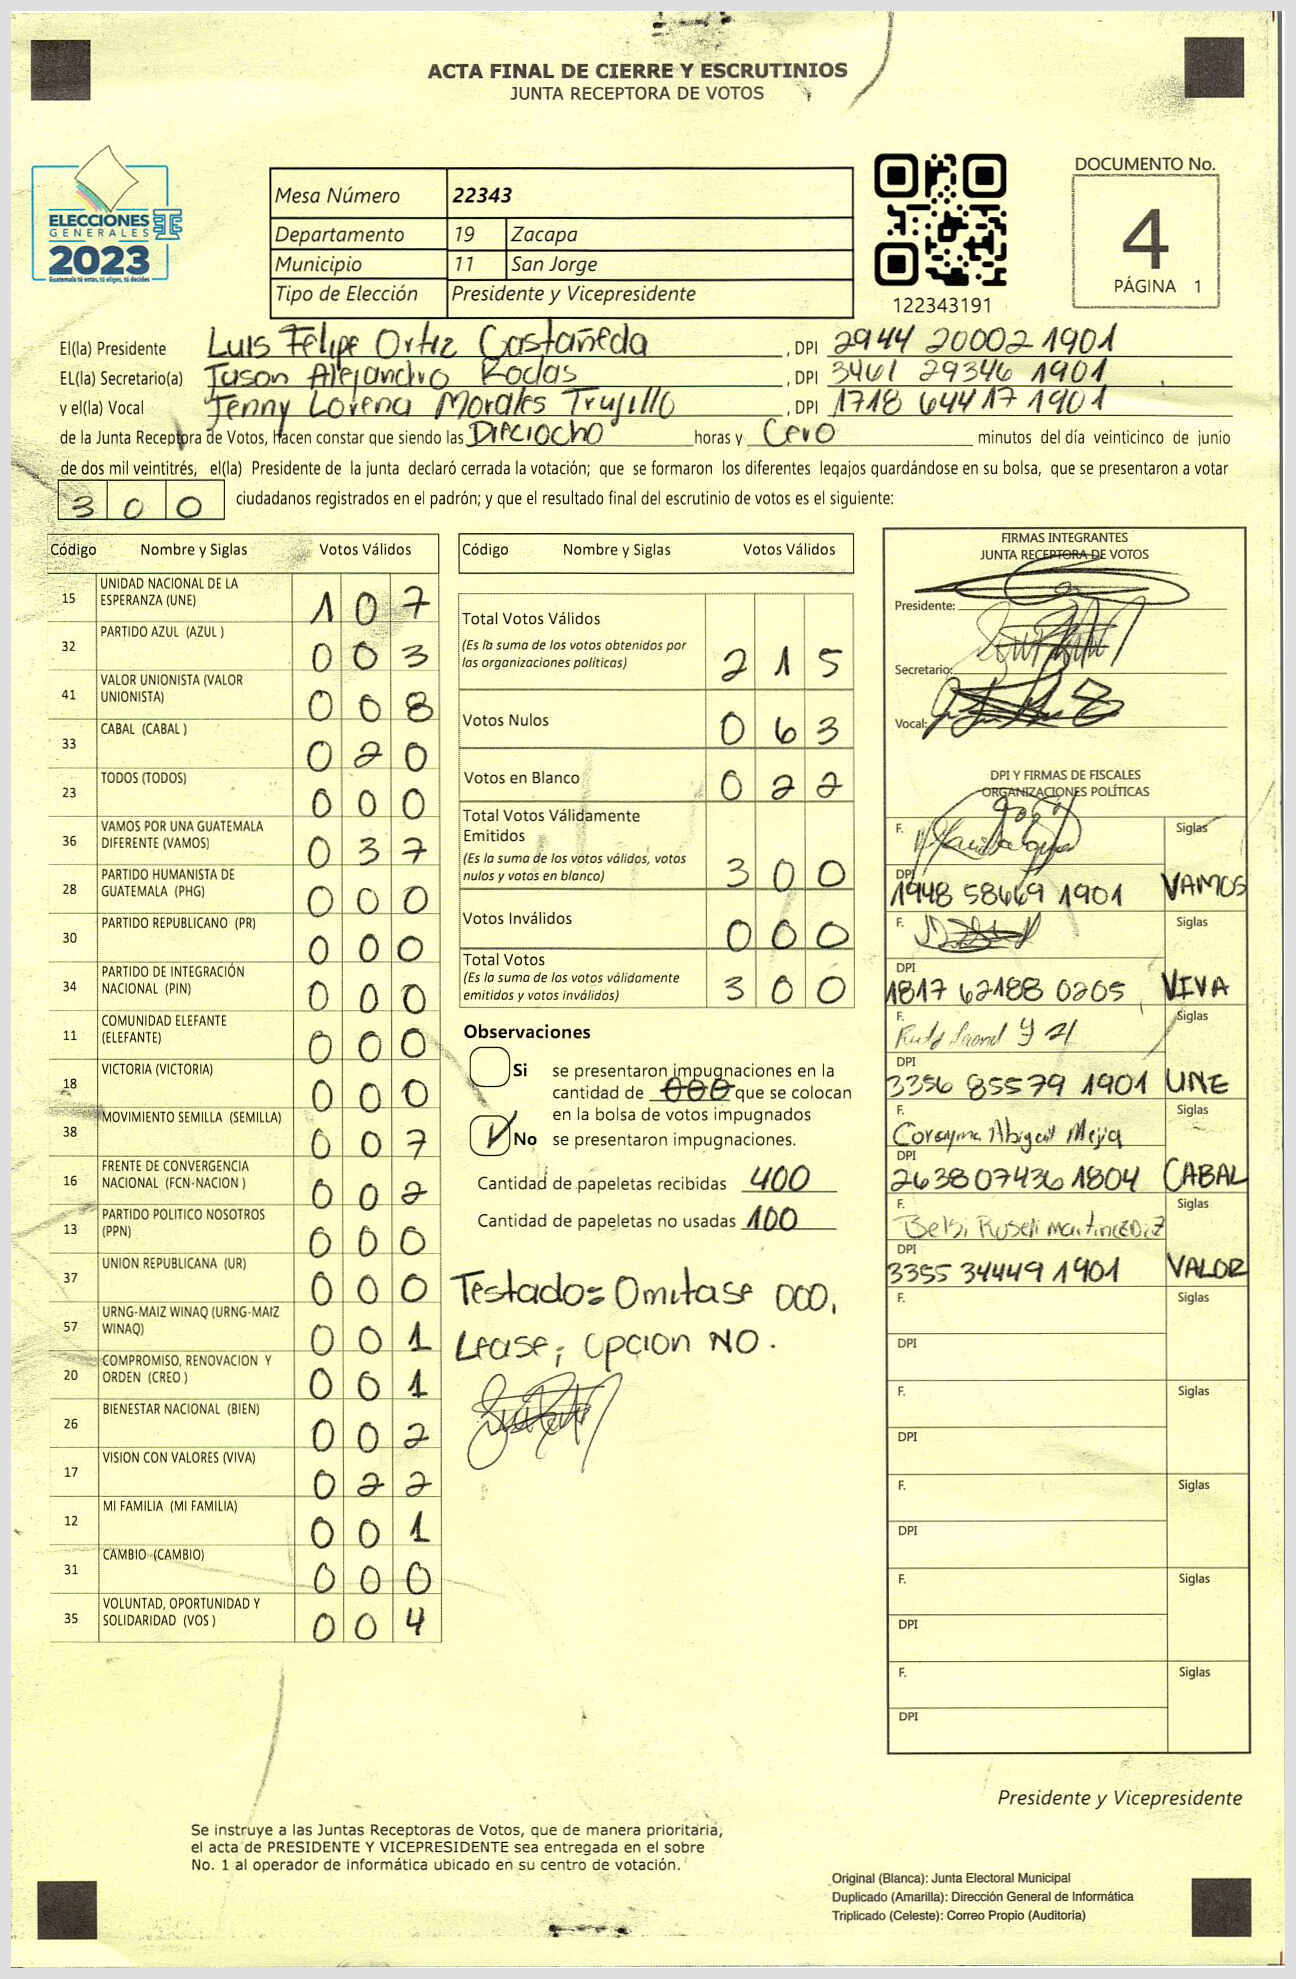 ACTA FINAL DE CIERRE Y ESCRUTINIOS
JUNTA RECEPTORA DE VOTOS
ELECCIONES
GENERALES
2023
Guatemala tú votas, tú eliges, tú decides
Mesa Número 22343
Departamento 19 Zacapa
Municipio 11 San Jorge
Tipo de Elección Presidente y Vicepresidente
122343191
DOCUMENTO No.
4
PÁGINA 1
El(la) Presidente Luis Felipe Ortiz Castañeda, DPI 2944 20002 1901
EL(la) Secretario(a) Jason Alejandro Rodas, DPI 3461 29346 1901
y el(la) Vocal Jenny Lorena Morales Trujillo, DPI 1718 64417 1901
de la Junta Receptora de Votos, hacen constar que siendo las Dieciocho horas y Cero minutos del día veinticinco de junio
de dos mil veintitrés, el(la) Presidente de la junta declaró cerrada la votación; que se formaron los diferentes legajos guardándose en su bolsa, que se presentaron a votar
300 ciudadanos registrados en el padrón; y que el resultado final del escrutinio de votos es el siguiente:
Código Nombre y Siglas Votos Válidos
15 UNIDAD NACIONAL DE LA ESPERANZA (UNE) 107
32 PARTIDO AZUL (AZUL ) 003
41 VALOR UNIONISTA (VALOR UNIONISTA) 008
33 CABAL (CABAL ) 020
23 TODOS (TODOS) 000
36 VAMOS POR UNA GUATEMALA DIFERENTE (VAMOS) 037
28 PARTIDO HUMANISTA DE GUATEMALA (PHG) 000
30 PARTIDO REPUBLICANO (PR) 000
34 PARTIDO DE INTEGRACIÓN NACIONAL (PIN) 000
11 COMUNIDAD ELEFANTE (ELEFANTE) 000
18 VICTORIA (VICTORIA) 000
38 MOVIMIENTO SEMILLA (SEMILLA) 007
16 FRENTE DE CONVERGENCIA NACIONAL (FCN-NACION ) 002
13 PARTIDO POLITICO NOSOTROS (PPN) 000
37 UNION REPUBLICANA (UR) 000
57 URNG-MAIZ WINAQ (URNG-MAIZ WINAQ) 001
20 COMPROMISO, RENOVACION Y ORDEN (CREO ) 001
26 BIENESTAR NACIONAL (BIEN) 002
17 VISION CON VALORES (VIVA) 022
12 MI FAMILIA (MI FAMILIA) 001
31 CAMBIO (CAMBIO) 000
35 VOLUNTAD, OPORTUNIDAD Y SOLIDARIDAD (VOS ) 004
Código Nombre y Siglas Votos Válidos
Total Votos Válidos
(Es la suma de los votos obtenidos por
las organizaciones politicas) 215
Votos Nulos 063
Votos en Blanco 022
Total Votos Válidamente
Emitidos
(Es la suma de los votos válidos, votos
nulos y votos en blanco) 300
Votos Inválidos 000
Total Votos
(Es la suma de los votos válidamente
emitidos y votos inválidos) 300
Observaciones
Si se presentaron impugnaciones en la
cantidad de 000 que se colocan
en la bolsa de votos impugnados
No se presentaron impugnaciones.
Cantidad de papeletas recibidas 400
Cantidad de papeletas no usadas 100
Testados Omitase 000.
Lease; Opcion NO.
FIRMAS INTEGRANTES
JUNTA RECEPTORA DE VOTOS
Presidente:
Secretario:
Vocal:
DPI Y FIRMAS DE FISCALES
ORGANIZACIONES POLÍTICAS
F. Siglas
DPI 1948 58669 1901 VAMOS
F. Siglas
DPI 1817 62188 0205 VIVA
F. Siglas
DPI 3356 85579 1901 UNE
F. Abigail Mejia Siglas
DPI 2638 07436 1804 CABAL
F. Martinez Siglas
DPI 3355 34449 1901 VALOR
F. Siglas
DPI
F. Siglas
DPI
F. Siglas
DPI
F. Siglas
DPI
F. Siglas
DPI
Presidente y Vicepresidente
Se instruye a las Juntas Receptoras de Votos, que de manera prioritaria,
el acta de PRESIDENTE Y VICEPRESIDENTE sea entregada en el sobre
No. 1 al operador de informática ubicado en su centro de votación.
Original (Blanca): Junta Electoral Municipal
Duplicado (Amarilla): Dirección General de Informática
Triplicado (Celeste): Correo Propio (Auditoria)